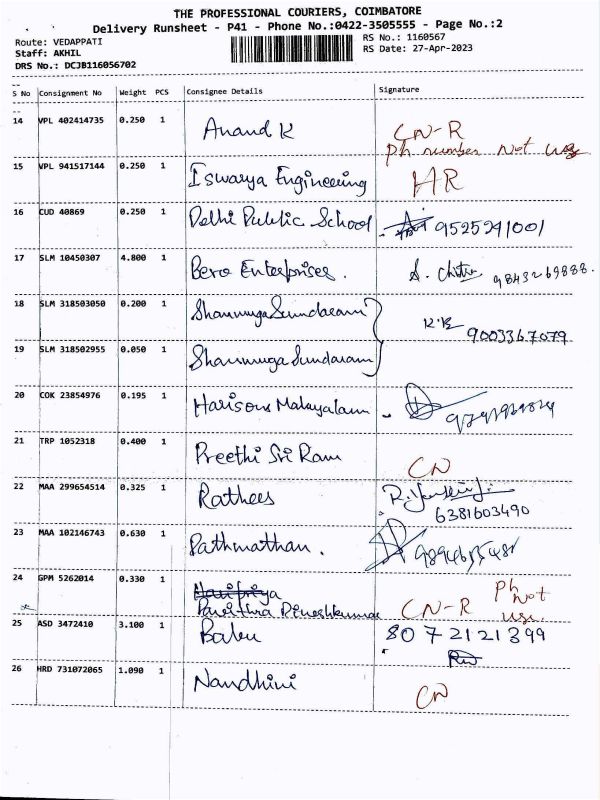 THE PROFESSIONAL COURIERS, COIMBATORE
Delivery Runsheet - P41 - Phone No.:0422-3505555 - Page No.:2
Route: VEDAPPATI
Staff: AKHIL
DRS No.: DCJB116056702
RS No.: 1160567
RS Date: 27-Apr-2023
S No Consignment No Weight PCS Consignee Details Signature
14 VPL 402414735 0.250 1 Anand K CN-R
Ph number not use
15 VPL 941517144 0.250 1 Iswarya Engineering HR
16 CUD 40869 0.250 1 Delhi Public School 9525291001
17 SLM 10450307 4.800 1 Bero Enterprises. S. Chitra 9843269888.
18 SLM 318503050 0.200 1 Shanmuga Sundaram
9003367079
19 SLM 318502955 0.050 1 Shanmuga Sundaram
20 COK 23854976 0.195 1 Harisons Malayalam
21 TRP 1052318 0.400 1 Preethi Sri Ram CN
22 MAA 299654514 0.325 1 Rathees
6381603490
23 MAA 102146743 0.630 1 Pathmathan.
24 GPM 5262014 0.330 1 Haripriya
Pavithra Dineshkumar CN-R Ph not
use.
25 ASD 3472410 3.100 1 Babu 8072121399
26 HRD 731072065 1.090 1 Nandhini CN